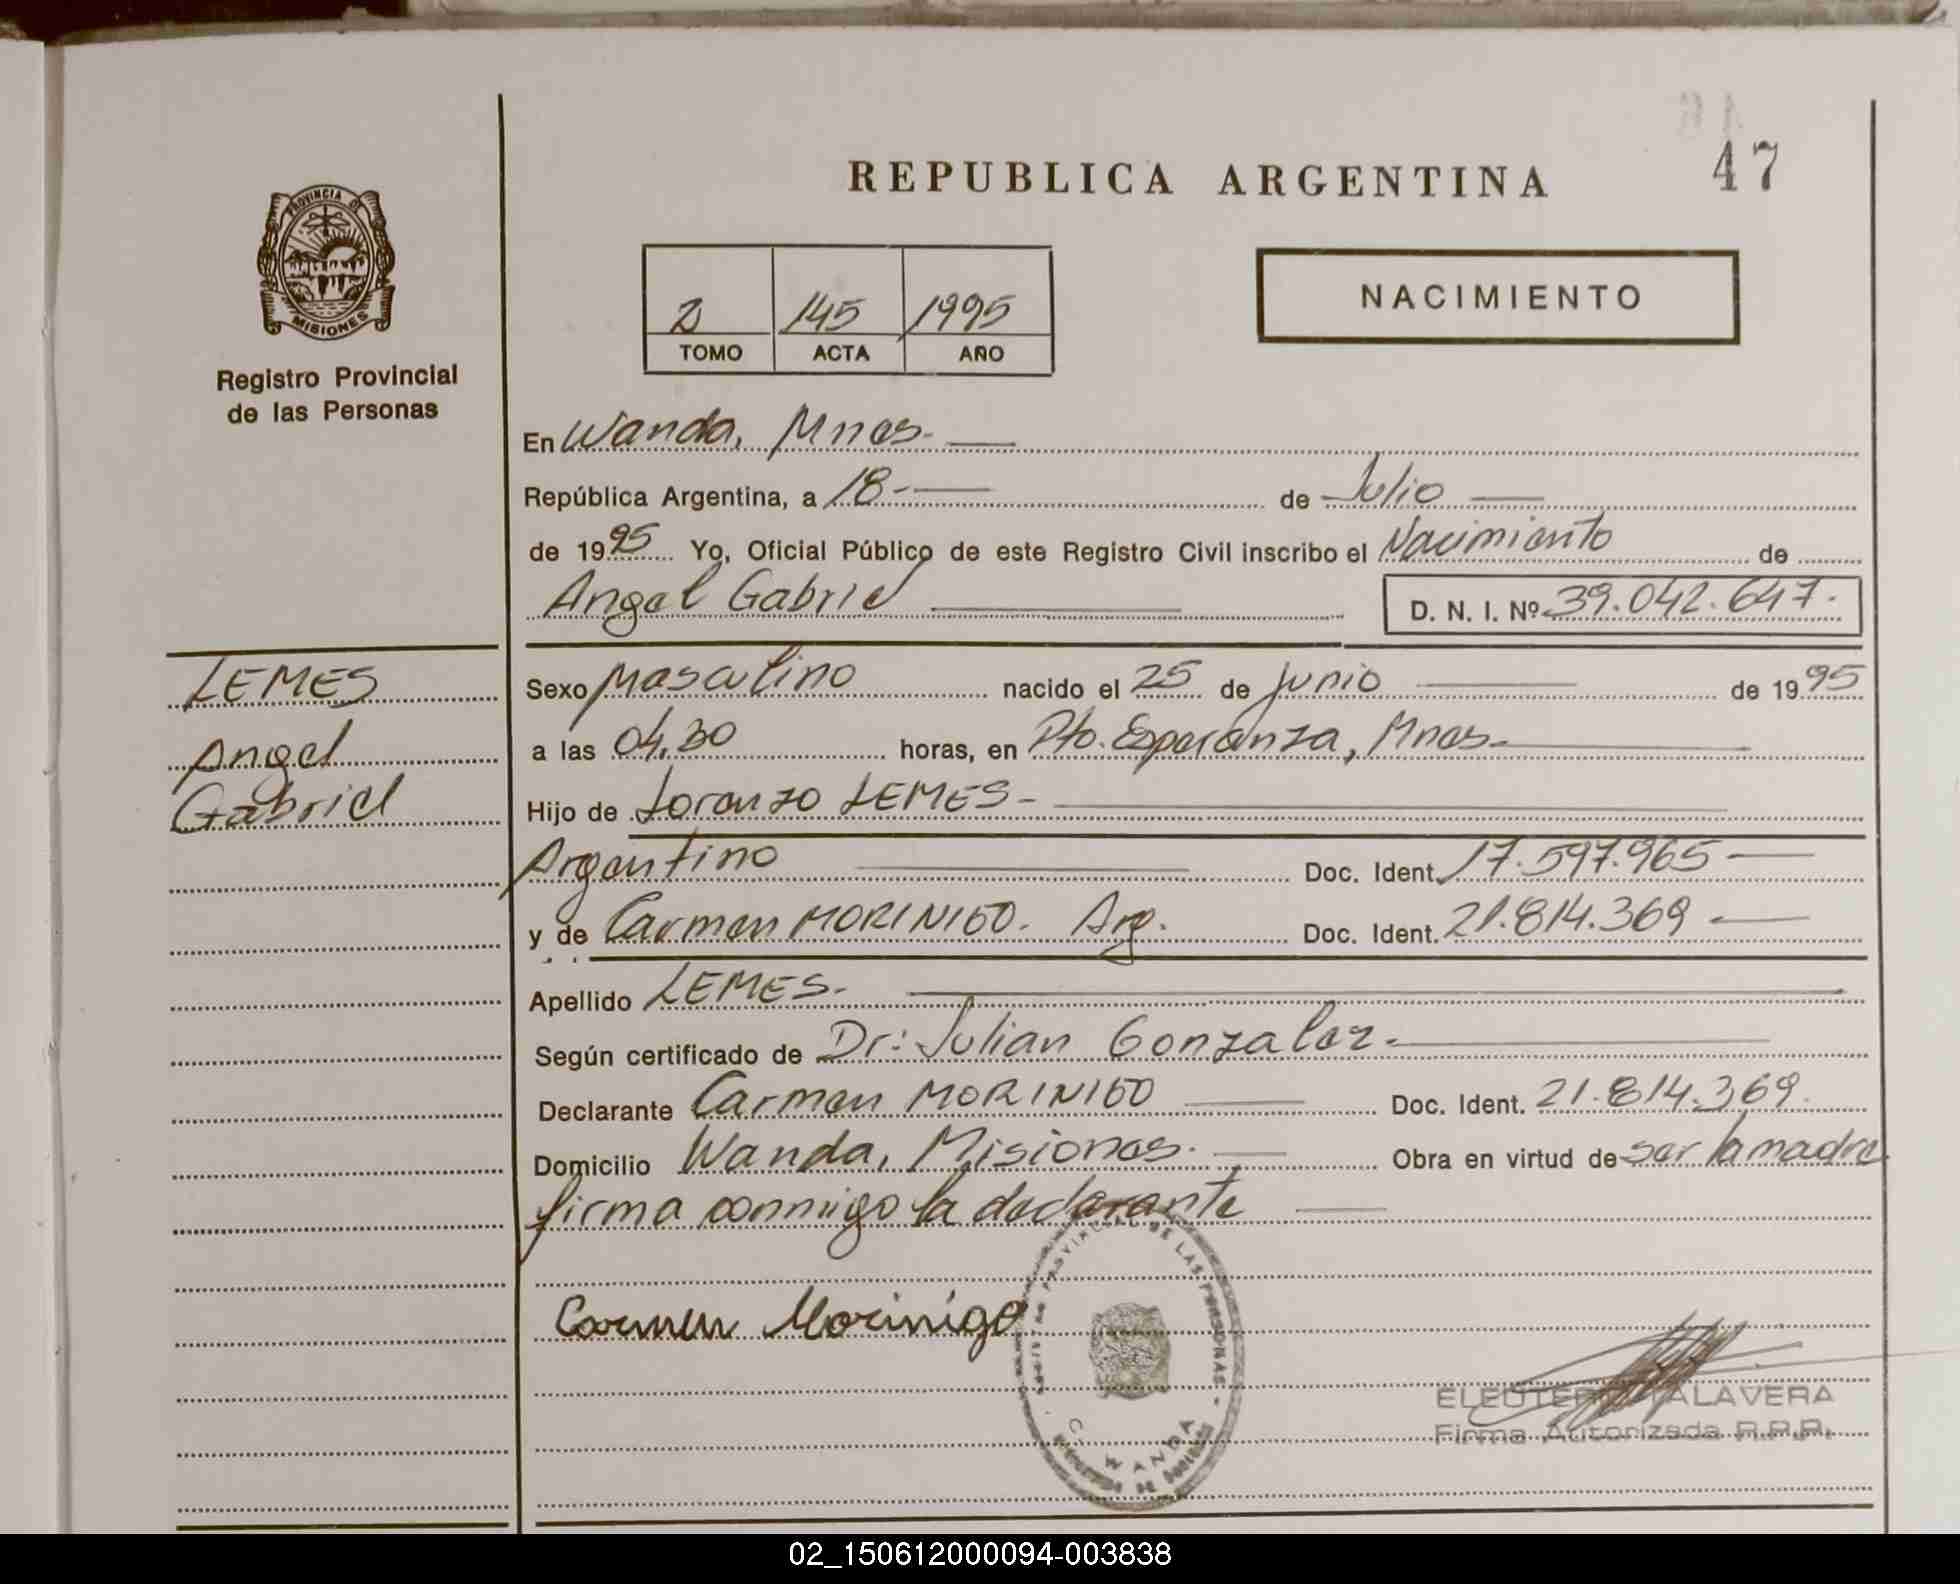 46
47
REPUBLICA ARGENTINA
PROVINCIA DE
MISIONES
Registro Provincial
de las Personas
2 145 1995
TOMO ACTA AÑO
NACIMIENTO
En Wanda, Mnes.
República Argentina, a 18 de Julio
de 1995 Yo, Oficial Público de este Registro Civil inscribo el Nacimiento de
Angel Gabriel D. N. I. Nº 39.042.647.
LEMES
Angel
Gabriel
Sexo Masculino nacido el 25 de junio de 1995
a las 04,30 horas, en Pto. Esperanza, Mnes
Hijo de Lorenzo LEMES
Argentino Doc. Ident. 17.597.965
y de Carmen MORINIGO. Arg. Doc. Ident. 21.814.369
Apellido LEMES.
Según certificado de Dr: Julian Gonzalez.
Declarante Carmen MORINIGO Doc. Ident. 21.814.369.
Domicilio Wanda, Misiones. Obra en virtud de ser la madre
firma conmigo la declarante
Carmen Morinigo
DE LAS PERSONAS
WANDA
ELEUTERIO TALAVERA
Firma Autorizada R.P.P.
02_150612000094-003838